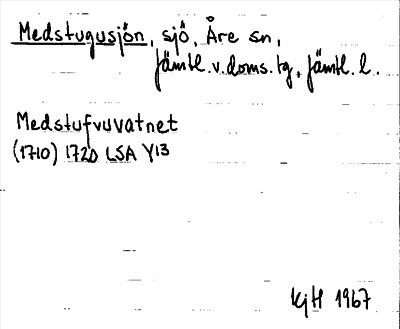 Medstugusjön, sjö, Åre sn,
Jämtl. v. doms. tg, Jämtl. l.
Medstufvuvatnet
(1710) 1720 LSA Y13
KjH 1967